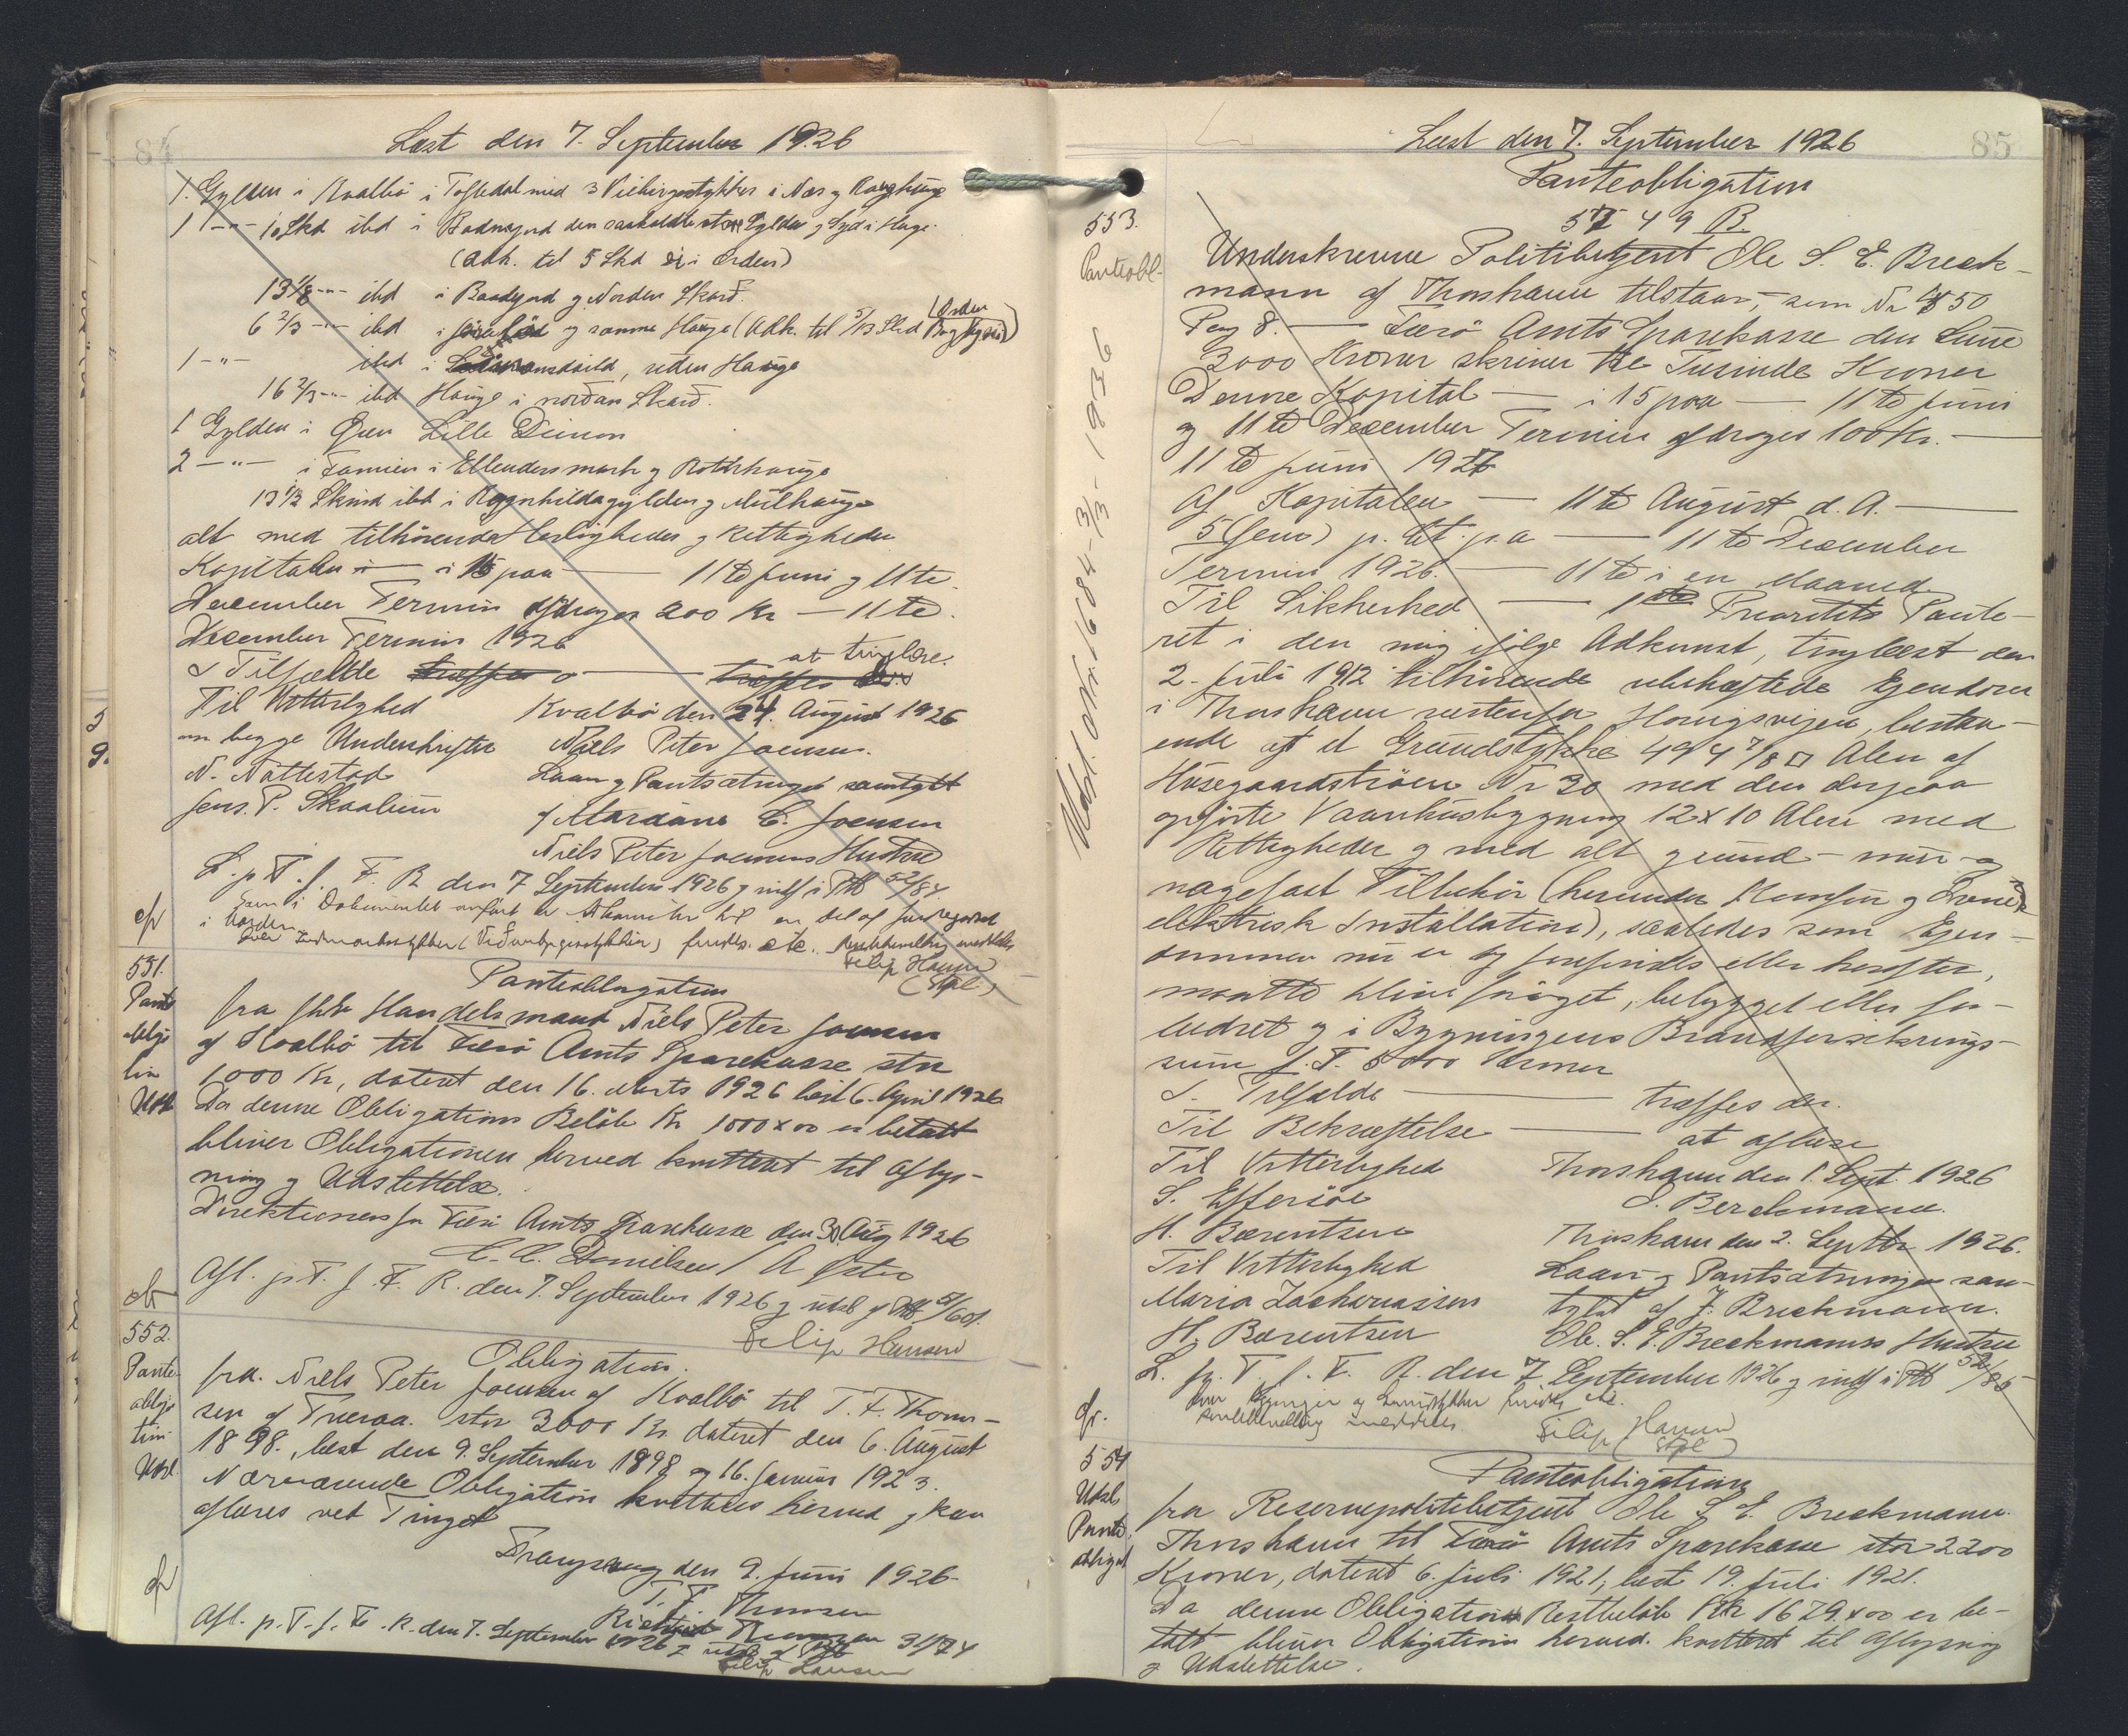 84
Læst den 7. September 1926
1. Gylden i Kvalbö i Tofledal med 3 i Nes og
1 -"- 10 Skd ibd i Gylden og Syd i Hauge.
(Adk. til 5 Skd ei i Orden)
13 1/3 -"- ibd i og Norden Skard.
6 2/3 -"- ibd i og samme Hauge (Adk. til 5/13 Skd Orden
1 -"- ibd i , uden Hauge
16 2/3 -"- ibd Hauge i nordan Skard.
1 Gylden i Öen Lille Dimon
2 -"- i Famien i Ellendersmark og Rotthauge
13 1/3 Skind ibd i Ragnhildagylden og Mülhauge
alt med tilhörende Herligheder og Rettigheder
Kapitalen — i 15 paa — 11te Juni og 11te
December Termin afdrages 200 Kr — 11te
December Termin 1926
at tinglæse.
I Tilfælde træffes — træffes
Til Vitterlighed Kvalbö den 24. August 1926
om begge Underskrifter Niels Peter Joensen.
N. Nattestad Laan og Pantsætningen samtykt
Jens. P. Skaalum af Mariane C. Joensen
Niels Peter Joensens Hustru
L. p. T. f. F. R. den 7 September 1926 og indf i Ptb 52/84
cfr Som i Dokumentet anfört er Adkomster til en del af
i Orden
findes. etc. meddeles
Filip Hansen
(Stpl.)
551. Panteobligation
Pante fra fhv Handelsmand Niels Peter Joensen
obliga af Kvalbö til Færö Amts Sparekasse stor
tion 1000 Kr, dateret den 16. Marts 1926 læst 6. April 1926
Udsl. Da denne Obligations Belöb Kr 1000 x 00 er betalt
bliver Obligationen herved kvitteret til Aflys-
ning og Udslettelse.
Direktionen for Færö Amts Sparekasse den 30. Aug 1926
C. C. Danielsen / A
Afl. p. T. f. F. R. den 7. September 1926 og udsl af Ptb 51/601.
Filip Hansen
552. Obligation.
Pante- fra. Niels Peter Joensen af Kvalbö til T. F. Thom-
obliga sen af Tveraa. stor 3000 Kr. dateret den 6. August
tion 1898., læst den 9. September 1898 og 16. Januar 1923.
Udsl. Nærværende Obligation kvitteres herved og kan
aflæses ved Tinget
Trangisvaag den 9. Juni 1926-
cfr T. F. Thomsen
Thomsen
Afl. p. T. f. F. R. den 7. September 1926 og udsl af Ptb 31/74
Filip Hansen
85
Læst den 7. September 1926
Panteobligation
553. 57 49 B
Panteobl- Underskrevne Politibetjent Ole S. E. Breck-
mann af Thorshavn tilstaar, — som Nr 50
Pag 8. — Færö Amts Sparekasse den Sum
3000 Kroner skriver Tre Tusinde Kroner
Denne Kapital — i 15 paa — 11te Juni
og 11te December Termin afdrages 100 Kr. —
11te Juni 1927
Af Kapitalen — 11te August d. A. —
5 (fem) p. ct. p a — 11te December
Termin 1926. — 11te i en Maaned
Til Sikkerhed — 1ste Prioritets Pante-
ret i den mig ifölge Adkomst, tinglæst den
2. Juli 1912 tilhörende ubehæftede Ejendom
i Thorshavn vestenfor Hovigsvejen, bestaa-
ende af et Grundstykke 494 7/8 □ Alen af
Husegaardströen Nr 30 med den derpaa
opförte Vaanhusbygning 12 x 10 Alen med
Rettigheder og med alt grund - mur - og
nagelfast Tilbehör (herunder Komfur og Ovne,
elektrisk Installation), saaledes som Ejen-
dommen nu er og forefindes eller herefter,
maatte blive foröget, bebygget eller for-
bedret og i Bygningens Brandforsikrings-
sum f. T. 5000 Kroner
I. Tilfælde — træffes der.
Til Bekræftelse — at aflæse
Til Vitterlighed Thorshavn den 1. Sept. 1926
S. Effersöe O. Breckmann.
H. Bærentsen Thorshavn den 2. Septbr 1926.
Til Vitterlighed Laan og Pantsætningen sam-
Maria Zachariassen tykt af J. Breckmann.
H. Bærentsen Ole. S. E. Breckmanns Hustru
L. p. T. f. F. R. den 7 September 1926 og indf i Ptb 52/85
cfr. Over Bygninger og Grundstykker findes etc.
Realitbevilling meddeles. Filip Hansen
(Stpl)
Udsl. Nr. 1684 - 3/3 - 1936
554 Panteobligation
Udsl. fra Reservepolitibetjent Ole S. E. Breckmann.
Pante Thorshavn til Færö Amts Sparekasse stor 2200
obligat Kroner, dateret 6. Juli 1921, læst 19. Juli 1921.
Da denne Obligations Restbelöb Kr 1679 x 00 er be-
talt bliver Obligationen herved. kvitteret til Aflysning
og Udslettelse.